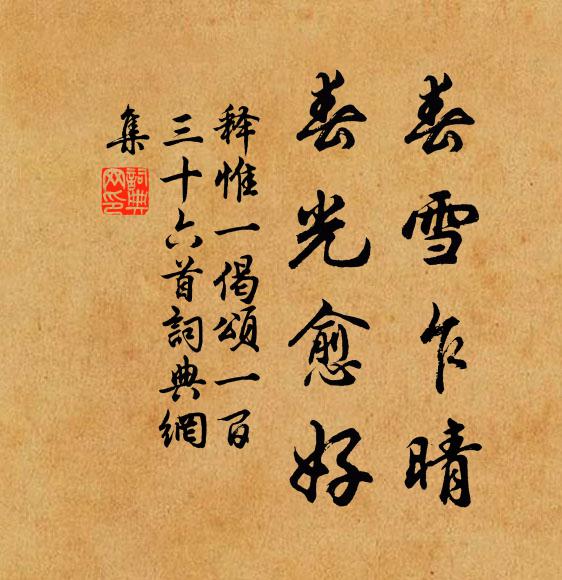 春雪乍晴
春光愈好
释惟一偈頌一百
三十六首詞典網
集
詞典
网印